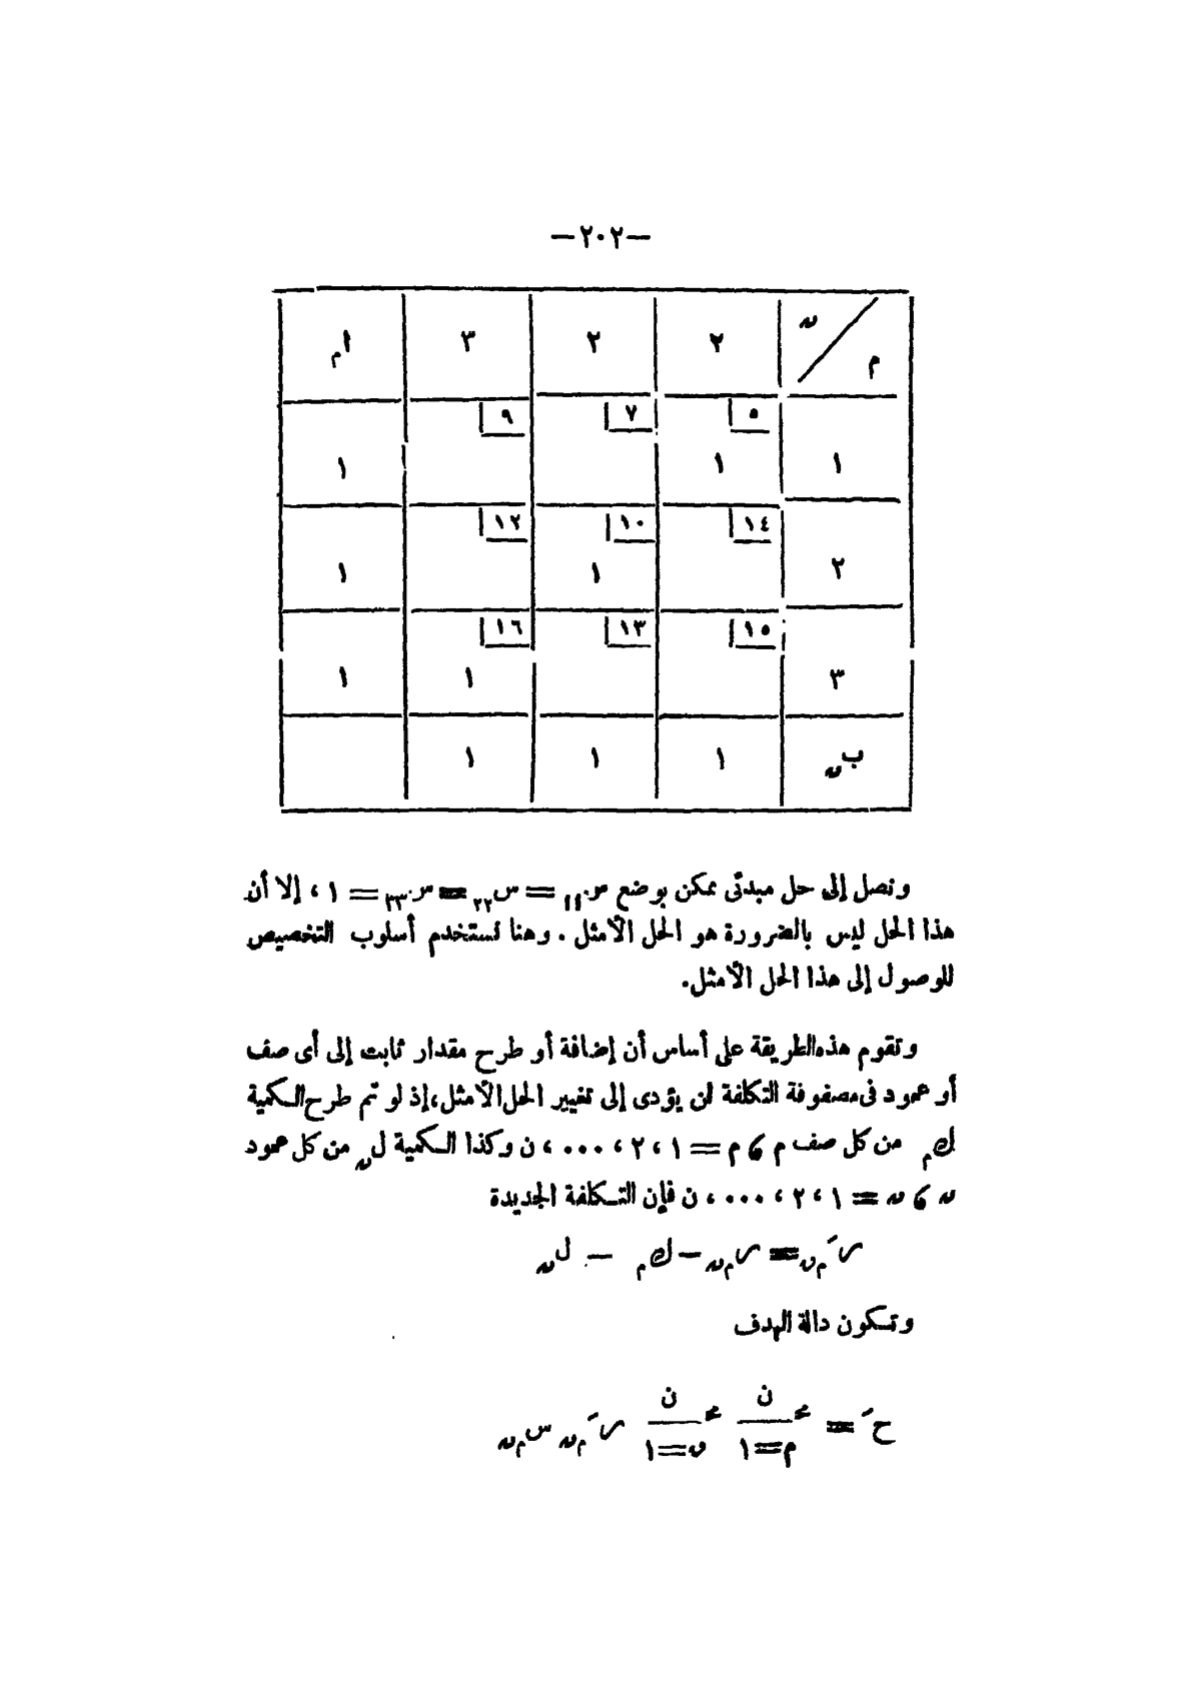 —٢٠٢—
م / ں ٢ ٢ ٣ ام
٥ ٧ ٩
١ ١ ١
١٤ ١٠ ١٢
٢ ١ ١
١٥ ١٣ ١٦
٣ ١ ١
بں ١ ١ ١
ونصل إلى حل مبدئى ممكن بوضع س١١ = س٢٢ = س٣٣ = ١ ، إلا أن
هذا الحل ليس بالضرورة هو الحل الأمثل . وهنا نستخدم أسلوب التخصيص
للوصول إلى هذا الحل الأمثل.
وتقوم هذه الطريقة على أساس أن إضافة أو طرح مقدار ثابت إلى أى صف
أو عمود فى مصفوفة التكلفة لن يؤدى إلى تغيير الحل الأمثل، إذ لو تم طرح الكمية
كم من كل صف م ، م = ١ ، ٢ ، ٠٠٠ ، ن وكذا الكمية لں من كل عمود
ں ، ں = ١ ، ٢ ، ٠٠٠ ، ن فإن التكلفة الجديدة
رَم ں = رم ں — كم — لں
وتكون دالة الهدف
ن ن
حَ = محـ محـ رَم ں سم ں
م=١ ں=١